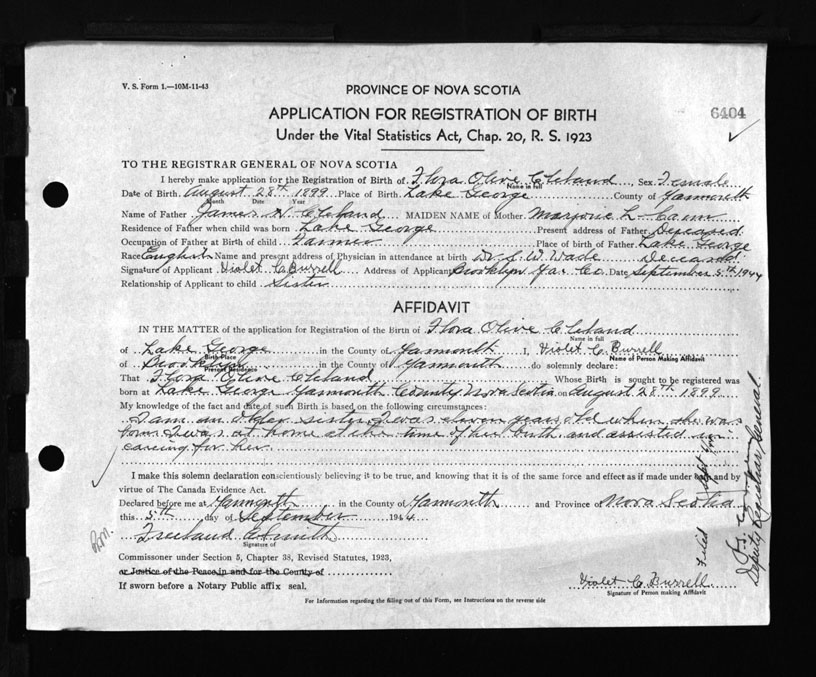 V. S. Form 1.—10M-11-43
PROVINCE OF NOVA SCOTIA
6404
APPLICATION FOR REGISTRATION OF BIRTH
Under the Vital Statistics Act, Chap. 20, R. S. 1923
TO THE REGISTRAR GENERAL OF NOVA SCOTIA
I hereby make application for the Registration of Birth of Flora Olive Cleland Sex Female
Name in full
Date of Birth August 28th 1899 Place of Birth Lake George County of Yarmouth
Month Date Year
Name of Father James A. Cleland MAIDEN NAME of Mother Marjorie L. Cann
Residence of Father when child was born Lake George Present address of Father Deceased
Occupation of Father at Birth of child Farmer Place of birth of Father Lake George
Race English Name and present address of Physician in attendance at birth Dr. S. W. Wade Deceased
Signature of Applicant Violet C. Burrell Address of Applicant Brooklyn Yar. Co. Date September 5th 1944
Relationship of Applicant to child Sister
AFFIDAVIT
IN THE MATTER of the application for Registration of the Birth of Flora Olive Cleland
Name in full
of Lake George in the County of Yarmouth I, Violet C. Burrell
Birth Place Name of Person Making Affidavit
of Brooklyn in the County of Yarmouth do solemnly declare:
Present Residence
That Flora Olive Cleland Whose Birth is sought to be registered was
born at Lake George Yarmouth County Nova Scotia on August 28th 1899
My knowledge of the fact and date of such Birth is based on the following circumstances:
I am an older sister, I was eleven years old when she was
born. I was at home at the time of her birth and assisted in
caring for her.
I make this solemn declaration conscientiously believing it to be true, and knowing that it is of the same force and effect as if made under oath and by
virtue of The Canada Evidence Act.
Declared before me at Yarmouth in the County of Yarmouth and Province of Nova Scotia
this 5th day of September 1944
Freeland Smith
Signature of
Commissioner under Section 5, Chapter 38, Revised Statutes, 1923,
or Justice of the Peace in and for the County of
If sworn before a Notary Public affix seal.
Violet C. Burrell
Signature of Person making Affidavit
For Information regarding the filling out of this Form, see Instructions on the reverse side
Filed Sept
Deputy Registrar General